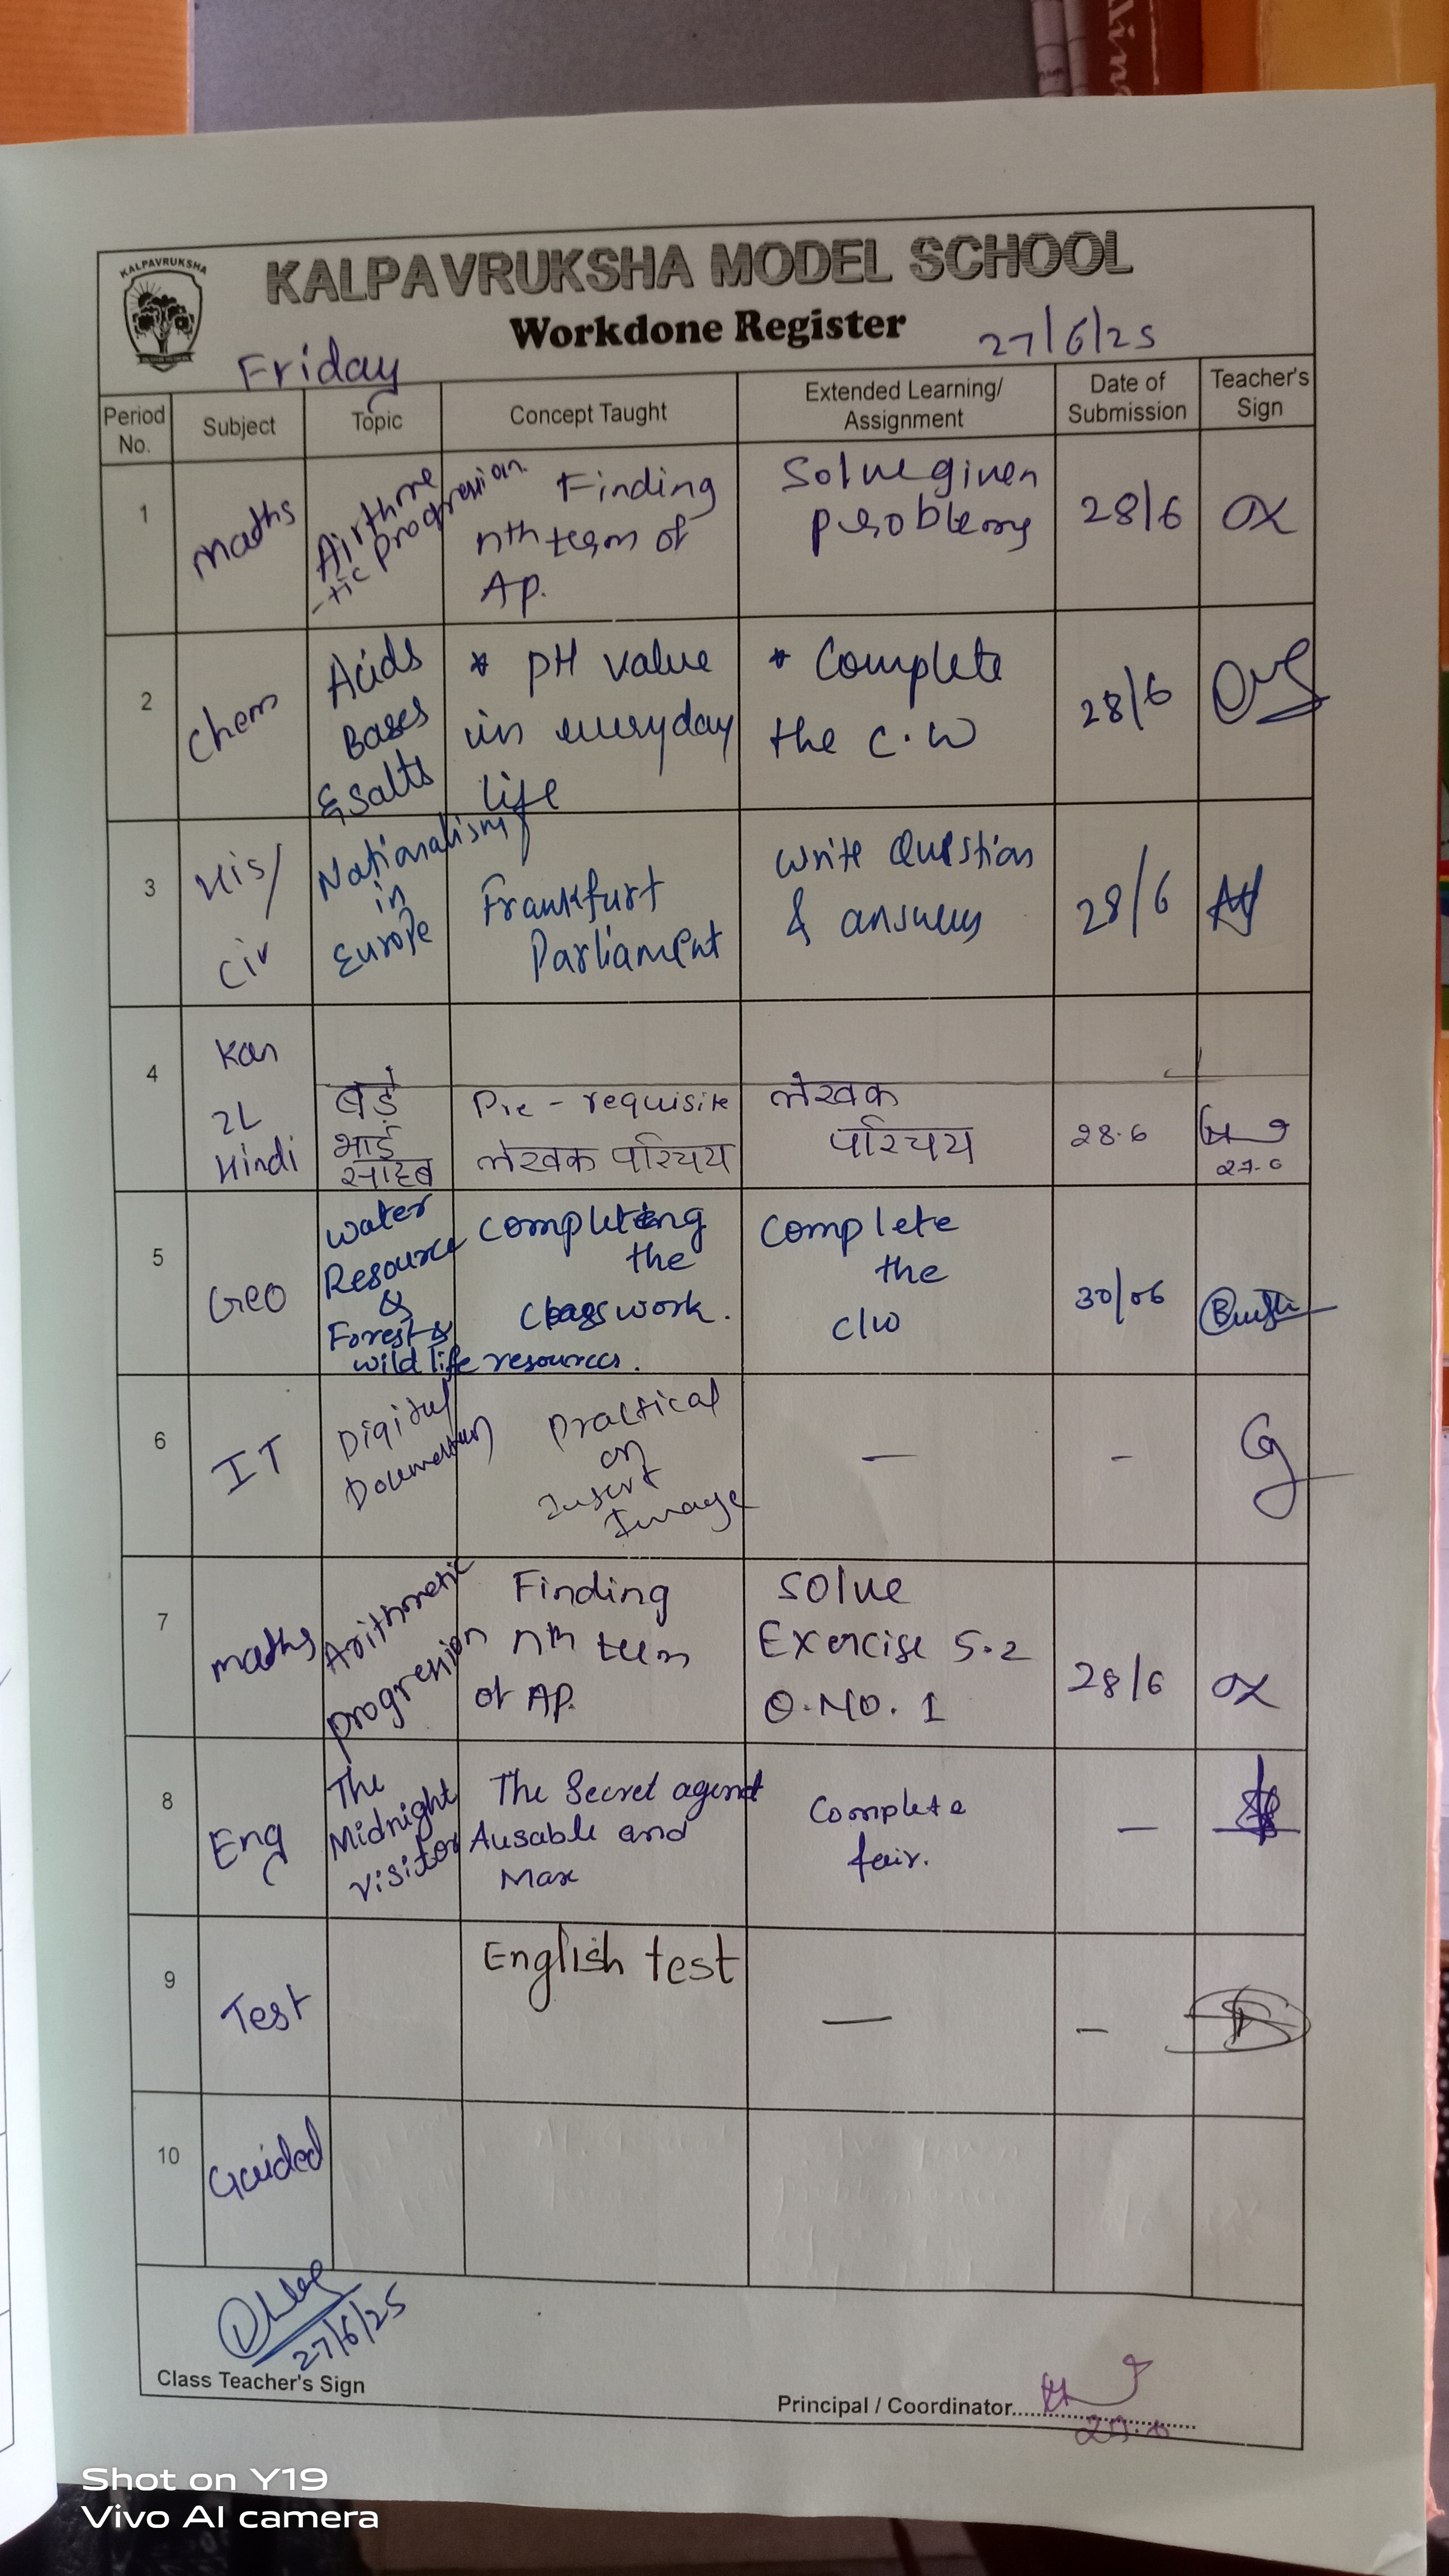 KALPAVRUKSHA
KALPAVRUKSHA MODEL SCHOOL
Workdone Register
Friday
27/6/25
Period No.
Subject
Topic
Concept Taught
Extended Learning/ Assignment
Date of Submission
Teacher's Sign
1
maths
Airthme
-tic progression
Finding
nth term of
AP.
Solve given
problems
28/6
2
Chem
Acids
Bases
& salts
* pH value
in everyday
life
* Complete
the C.W
28/6
3
His/
Civ
Nationalism
in
Europe
Frankfurt
Parliament
Write Question
& answers
28/6
4
Kan
2L
Hindi
बड़े
भाई
साहब
Pre-requisite
लेखक परिचय
लेखक
परिचय
28.6
5
Geo
Water
Resource
&
Forest &
wild life resources.
Completing
the
Classwork.
Complete
the
C/W
30/06
6
IT
Digital
Practical
on
Insert
Image
—
-
7
maths
Arithmetic
progression
Finding
nth term
of AP.
Solve
Exercise 5.2
Q.NO. 1
28/6
8
Eng
The
Midnight
visitor
The Secret agent
Ausable and
Max
Complete
fair.
—
9
Test
English test
—
-
10
Guided
27/6/25
Class Teacher's Sign
Principal / Coordinator
Shot on Y19
Vivo AI camera